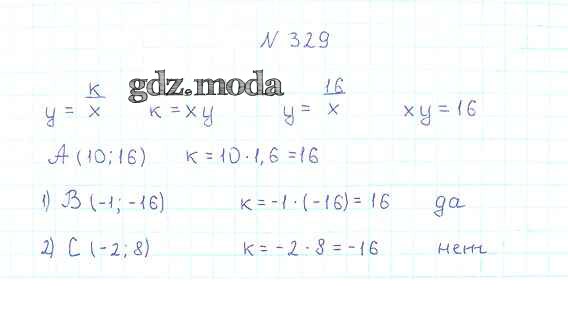 N 329
gdz.moda
y = к/x к = xy y = 16/x xy = 16
A (10; 16) к = 10 · 1,6 = 16
1) B (-1; -16) к = -1 · (-16) = 16 да
2) C (-2; 8) к = -2 · 8 = -16 нет